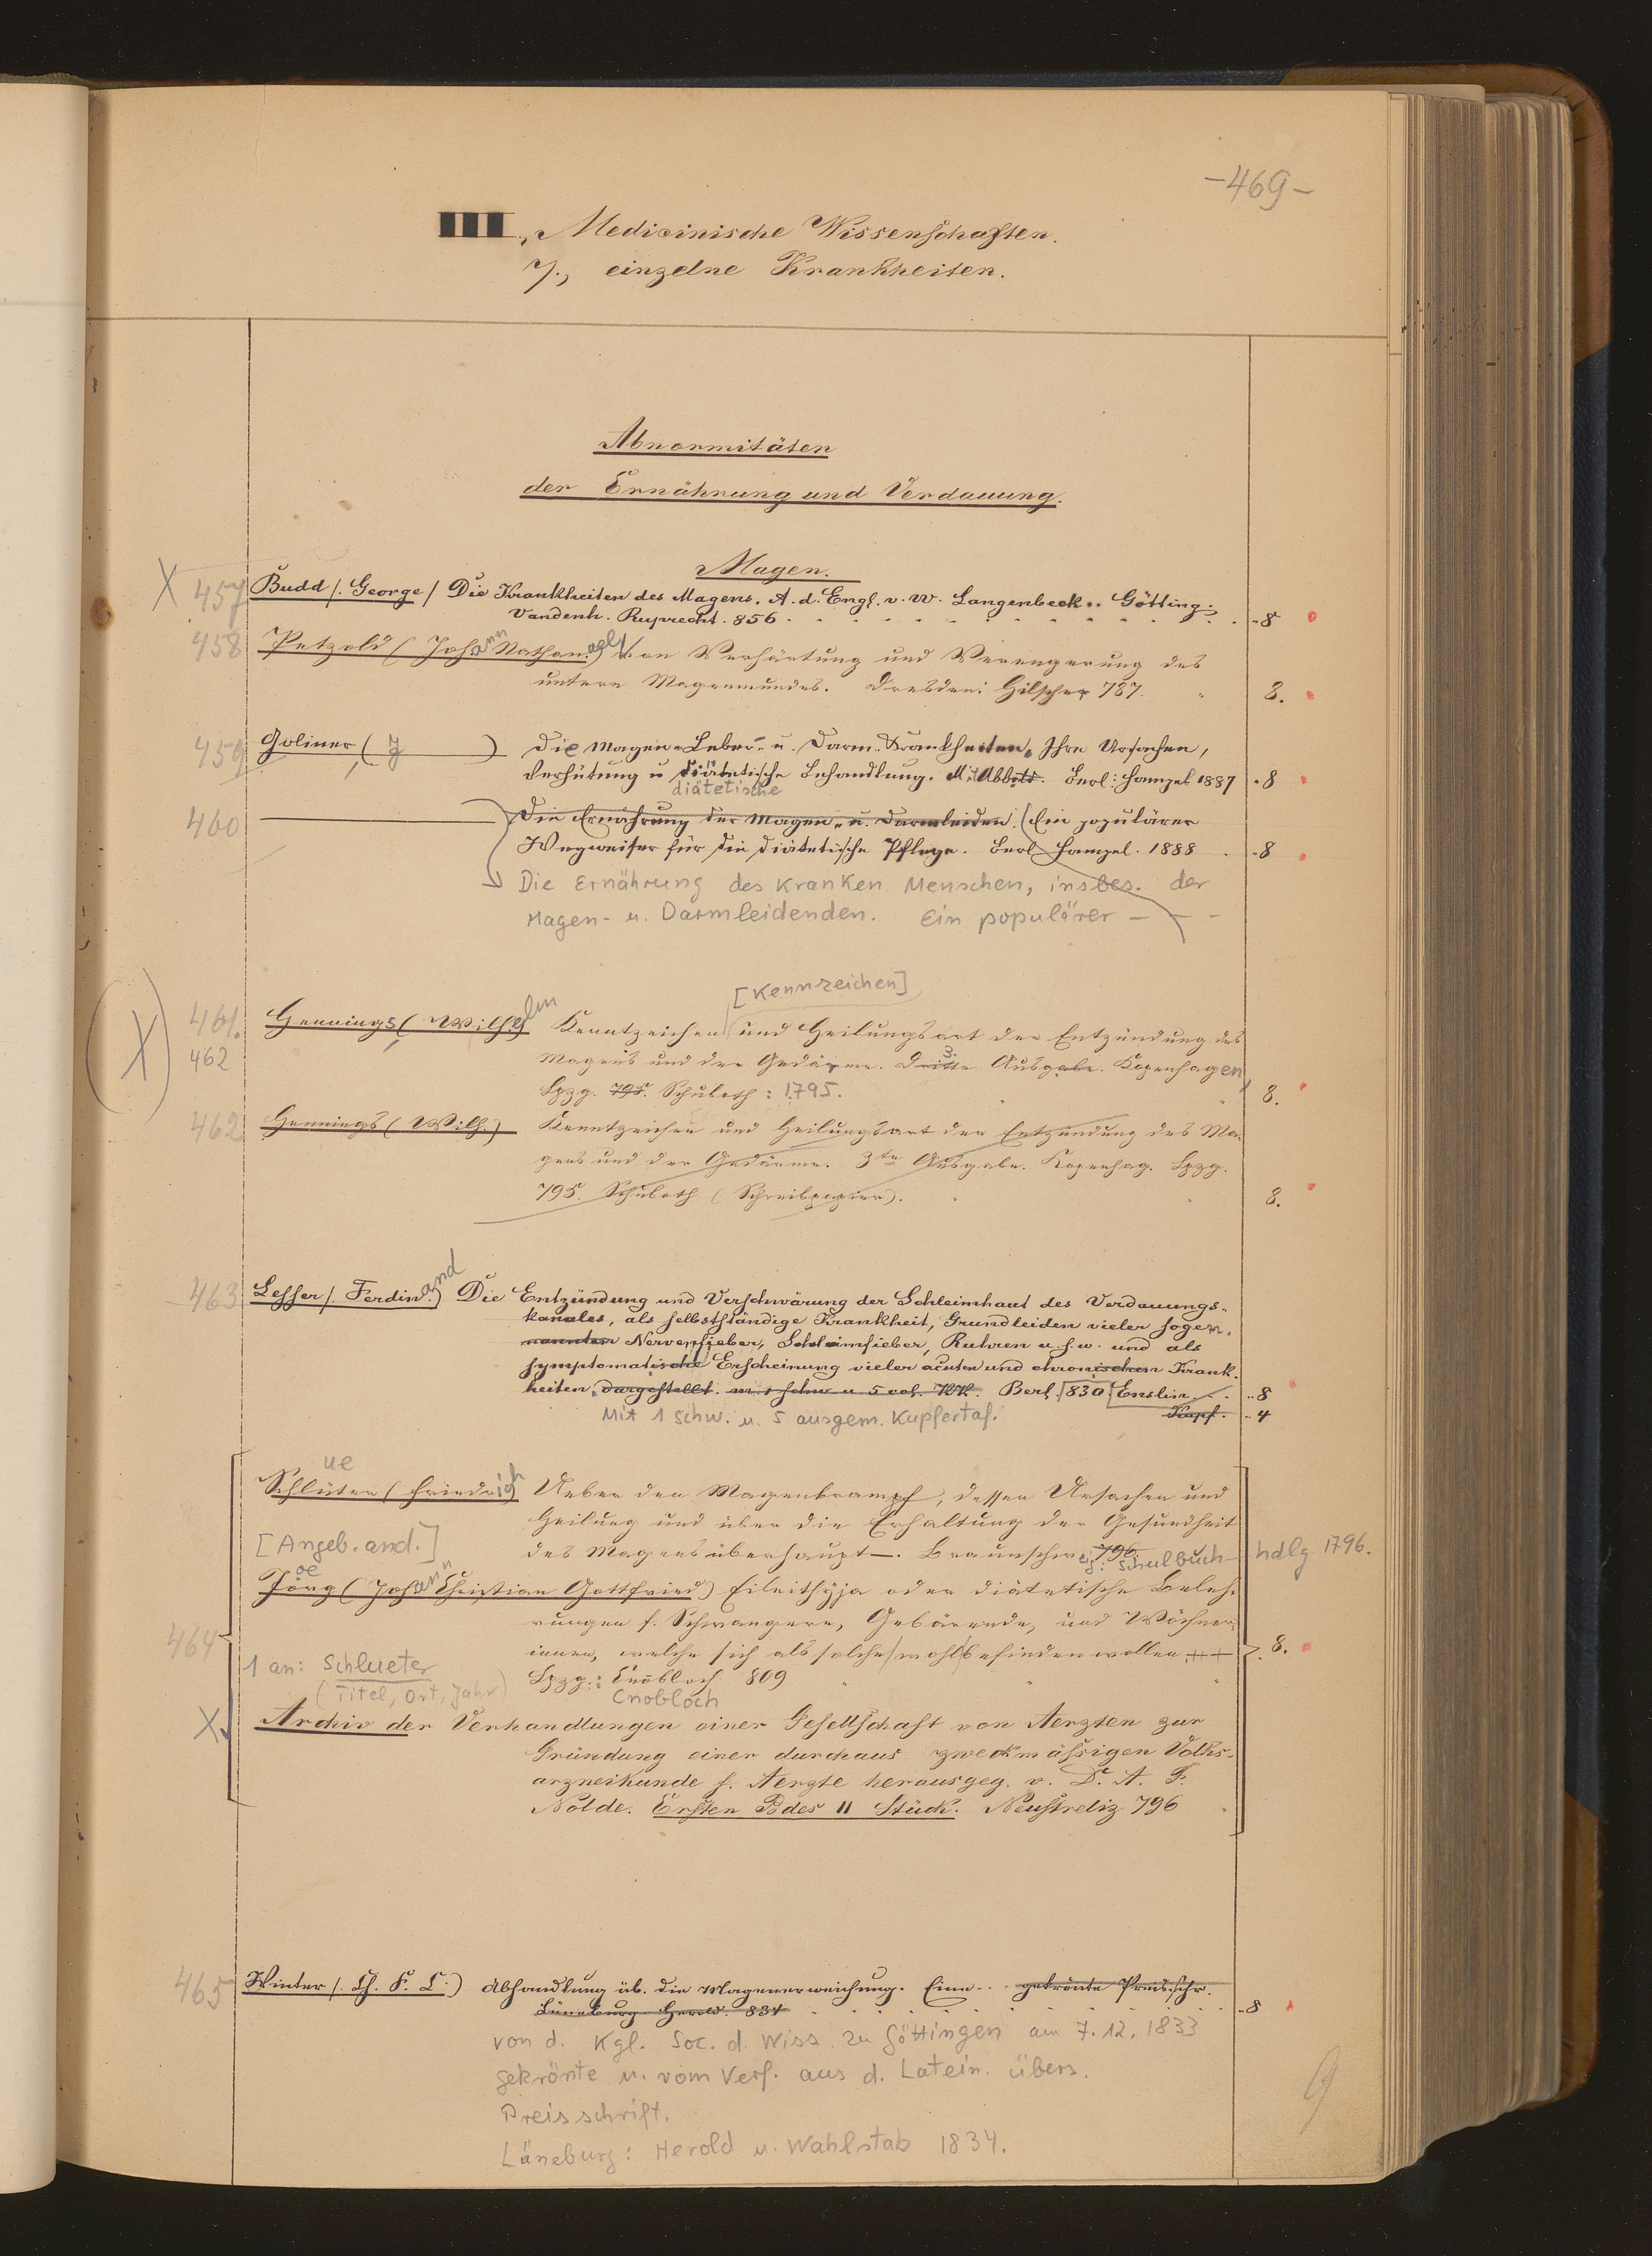 -469-
III., Medicinische Wissenschaften.
7., einzelne Krankheiten.
Abnormitäten
der Ernährung und Verdauung.
Magen.
X 457 Budd /. George / Die Krankheiten des Magens. A. d. Engl. v. W. Langenbeck. Götting.
Vandenh. Ruprecht. 856 - 8
458 Petzold (Johann Nathan.) Von Verhärtung und Verengerung des
untern Magenmundes. Dresden: Hilscher 787. 8.
459 Goliner, ( ) Die Magen- Leber- u. Darm-Krankheiten. Ihre Ursachen,
Verhütung u diätetische Behandlung. Mit Abb. Berl: Hampel 1887 - 8
diätetische
460 Die Ernährung der Magen- u. Darmleiden. (Ein populärer
Wegweiser für die diätetische Pflege. Berl Hampel. 1888 - 8
Die Ernährung des kranken Menschen, insbes. der
Magen- u. Darmleidenden. Ein populärer - - -
[Kennzeichen]
(X) 461. Hennings (Wilhelm Kenntzeichen und Heilungsart der Entzündung des
462 Magens und der Gedärme. Dritte 3. Ausgabe. Kopenhagen,
Lpzg. 795. Schuboth: 1795. 8.
462 Hennings (Wilh.) Kenntzeichen und Heilungsart der Entzündung des Ma-
gens und der Gedärme. 3te Ausgabe. Kopenhag. Lpzg.
795. Schuboth (Schreibpapier). 8.
463 Lesser /. Ferdinand.) Die Entzündung und Verschwärung der Schleimhaut des Verdauungs-
kanales, als selbstständige Krankheit, Grundleiden vieler sogen.
nannten Nervenfieber, Schleimfieber, Ruhren u. s. w. und als
symptomatische Erscheinung vieler acuten und chronischen Krank-
heiten, dargestellt. m. 1 schw u. 5 col. Kpf. Berl. 830 Enslin. - 8
Mit 1 schw. u. 5 ausgem. Kupfertaf. Kupf. - 4
ue
Schlüter (Friedrich Ueber den Magenkrampf, dessen Ursachen und
Heilung und über die Erhaltung der Gesundheit
[Angeb. and.] des Magens überhaupt -. Braunschweig: 796. Schulbuch- hdlg 1796.
oe
Jörg (Johann Christian Gottfried) Eileithyja oder diätetische Beleh-
rungen f. Schwangere, Gebärende, und Wöchner-
464 innen, welche sich als solche wohl befinden wollen 8.
1 an: Schlueter Lpzg.: Cnobloch 809
(Titel, Ort, Jahr) Cnobloch
X Archiv der Verhandlungen einer Gesellschaft von Aerzten zur
Gründung einer durchaus zweckmässigen Volks-
arzneikunde f. Aerzte herausgeg. v. Dr. A. F.
Nolde. Ersten Bdes II Stück. Neustreliz 796
465 Winter /. Th. F. C.) Abhandlung üb. die Magenerweichung. Eine . . gekrönte Preisschr.
Lüneburg Herold. 834 - 8
von d. Kgl. Soc. d. Wiss. zu Göttingen am 7. 12. 1833
gekrönte u. vom Verf. aus d. Latein. übers.
Preisschrift.
Lüneburg: Herold u. Wahlstab 1834.
9